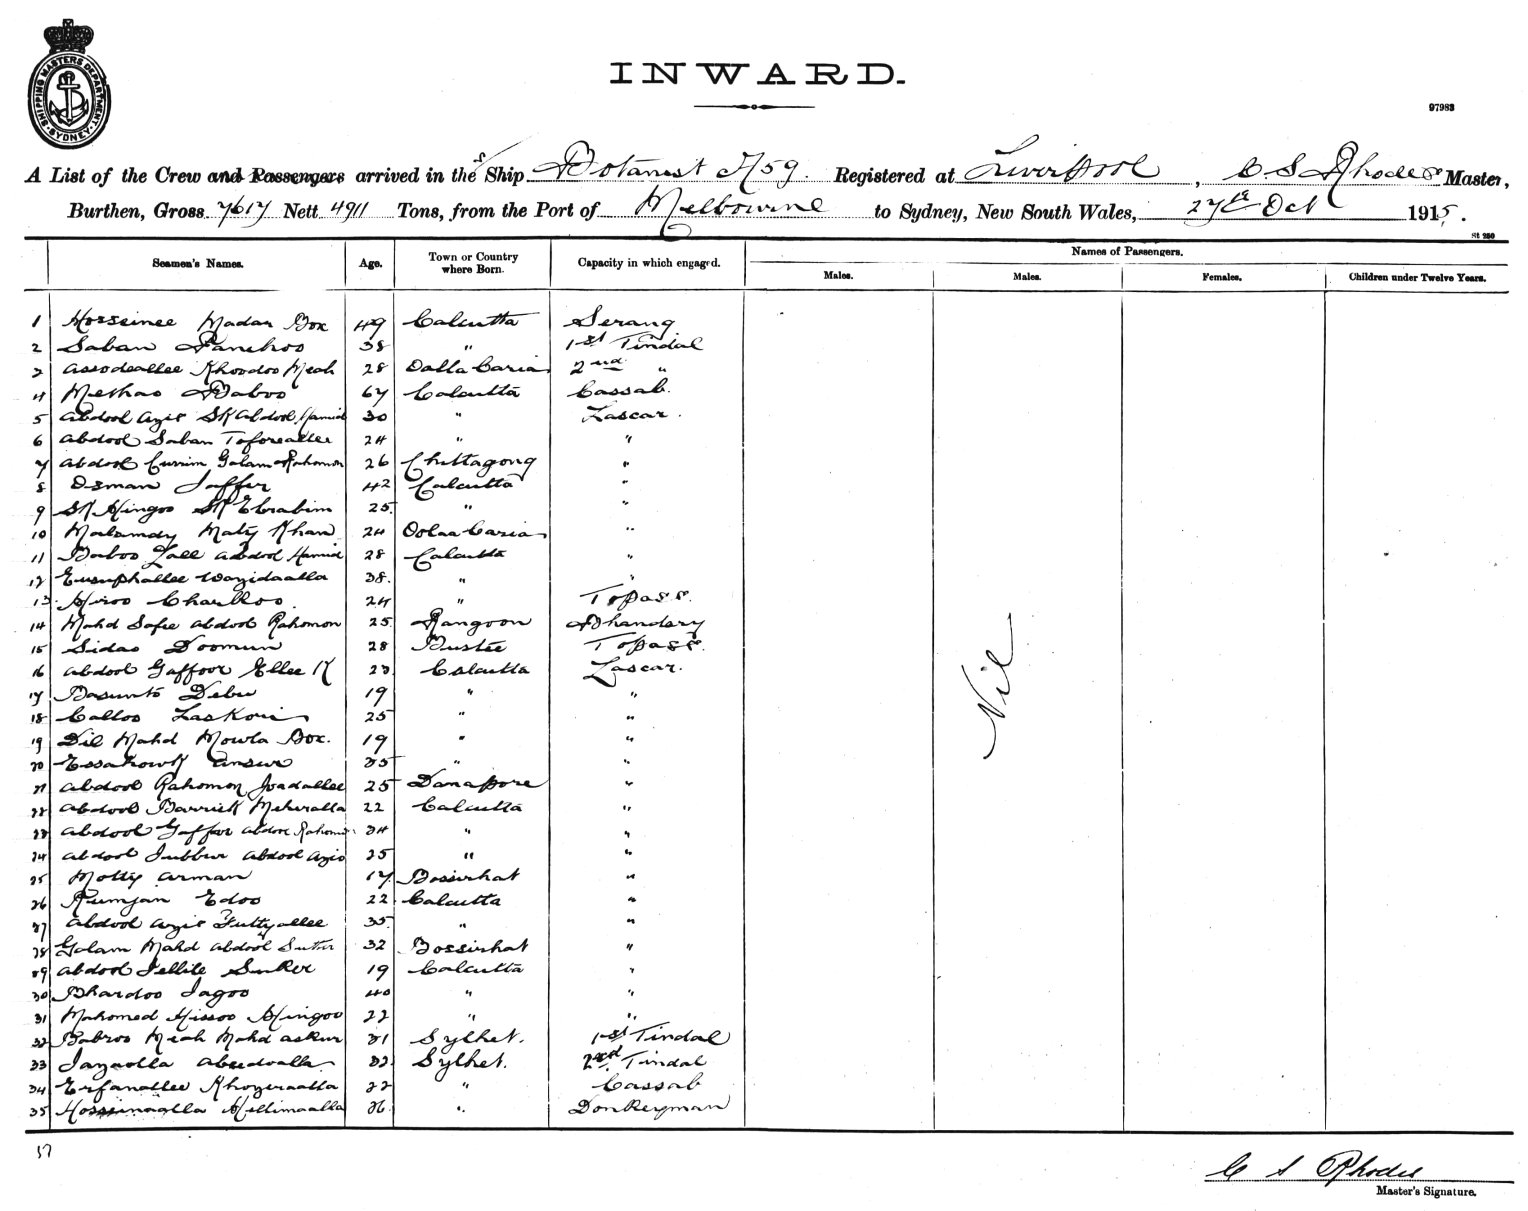 SHIPPING MASTERS DEPARTMENT SYDNEY
INWARD.
97983
A List of the Crew and Passengers arrived in the S/ Ship Botanist Registered at Liverpool, C S Rhodes Master,
Burthen, Gross 7617 Nett 4911 Tons, from the Port of Melbourne to Sydney, New South Wales, 27th Oct 1915.
St 250
Seamen's Names. Age. Town or Country where Born. Capacity in which engaged. Names of Passengers.
Males. Males. Females. Children under Twelve Years.
1 Hosseinee Madar Box 49 Calcutta Serang
2 Saban Panchoo 38 " 1st Tindal
3 Assodeallee Khoodoo Meah 28 Dalla Caria 2nd "
4 Methao Baboo 67 Calcutta Cassab
5 Abdool Azis SK Abdool Hamid 30 " Lascar.
6 Abdool Saban Toforeallee 24 " "
7 Abdool Currim Golam Rahomon 26 Chittagong "
8 Osman Jaffer 42 Calcutta "
9 SK Hingoo SK Ebrahim 25 " "
10 Malamdy Maty Khan 24 Oolaa Caria "
11 Baboo Lall Abdool Hamid 28 Calcutta "
12 Eusuphallee Wazidaalla 38 " "
13 Hiroo Charlloo 24 " Topass.
14 Mahd Safie Abdool Rahomon 25 Rangoon Bhandary
15 Sidao Doomun 28 Bustee Topass.
16 Abdool Gaffoor Ellee K 23 Calcutta Lascar.
17 Basunto Debu 19 " "
18 Calloo Laskori 25 " "
19 Dil Mahd Mowla Box. 19 " "
20 Essahowk Ansur 35 " "
21 Abdool Rahomon Joadallee 25 Danapore "
22 Abdool Barrick Meheralla 22 Calcutta "
23 Abdool Gaffur Abdool Rahomon 34 " "
24 Abdool Jubbur Abdool Azis 25 " "
25 Motty Arman 17 Bossirhat "
26 Rumjan Edoo 22 Calcutta "
27 Abdool Azis Futtyallee 35 " "
28 Golam Mahd Abdool Suttur 32 Bossirhat "
29 Abdool Jellile Sirker 19 Calcutta "
30 Bhardoo Jagoo 40 " "
31 Mahomed Hissoo Hingoo 22 " "
32 Babroo Meah Mahd Askur 31 Sylhet. 1st Tindal
33 Jaynolla Abedoalla 32 Sylhet. 2nd Tindal
34 Erfanallee Khozeraalla 22 " Cassab
35 Hosseinaalla Kellimaalla 26 " Donkeyman
Nil
37
C S Rhodes
Master's Signature.